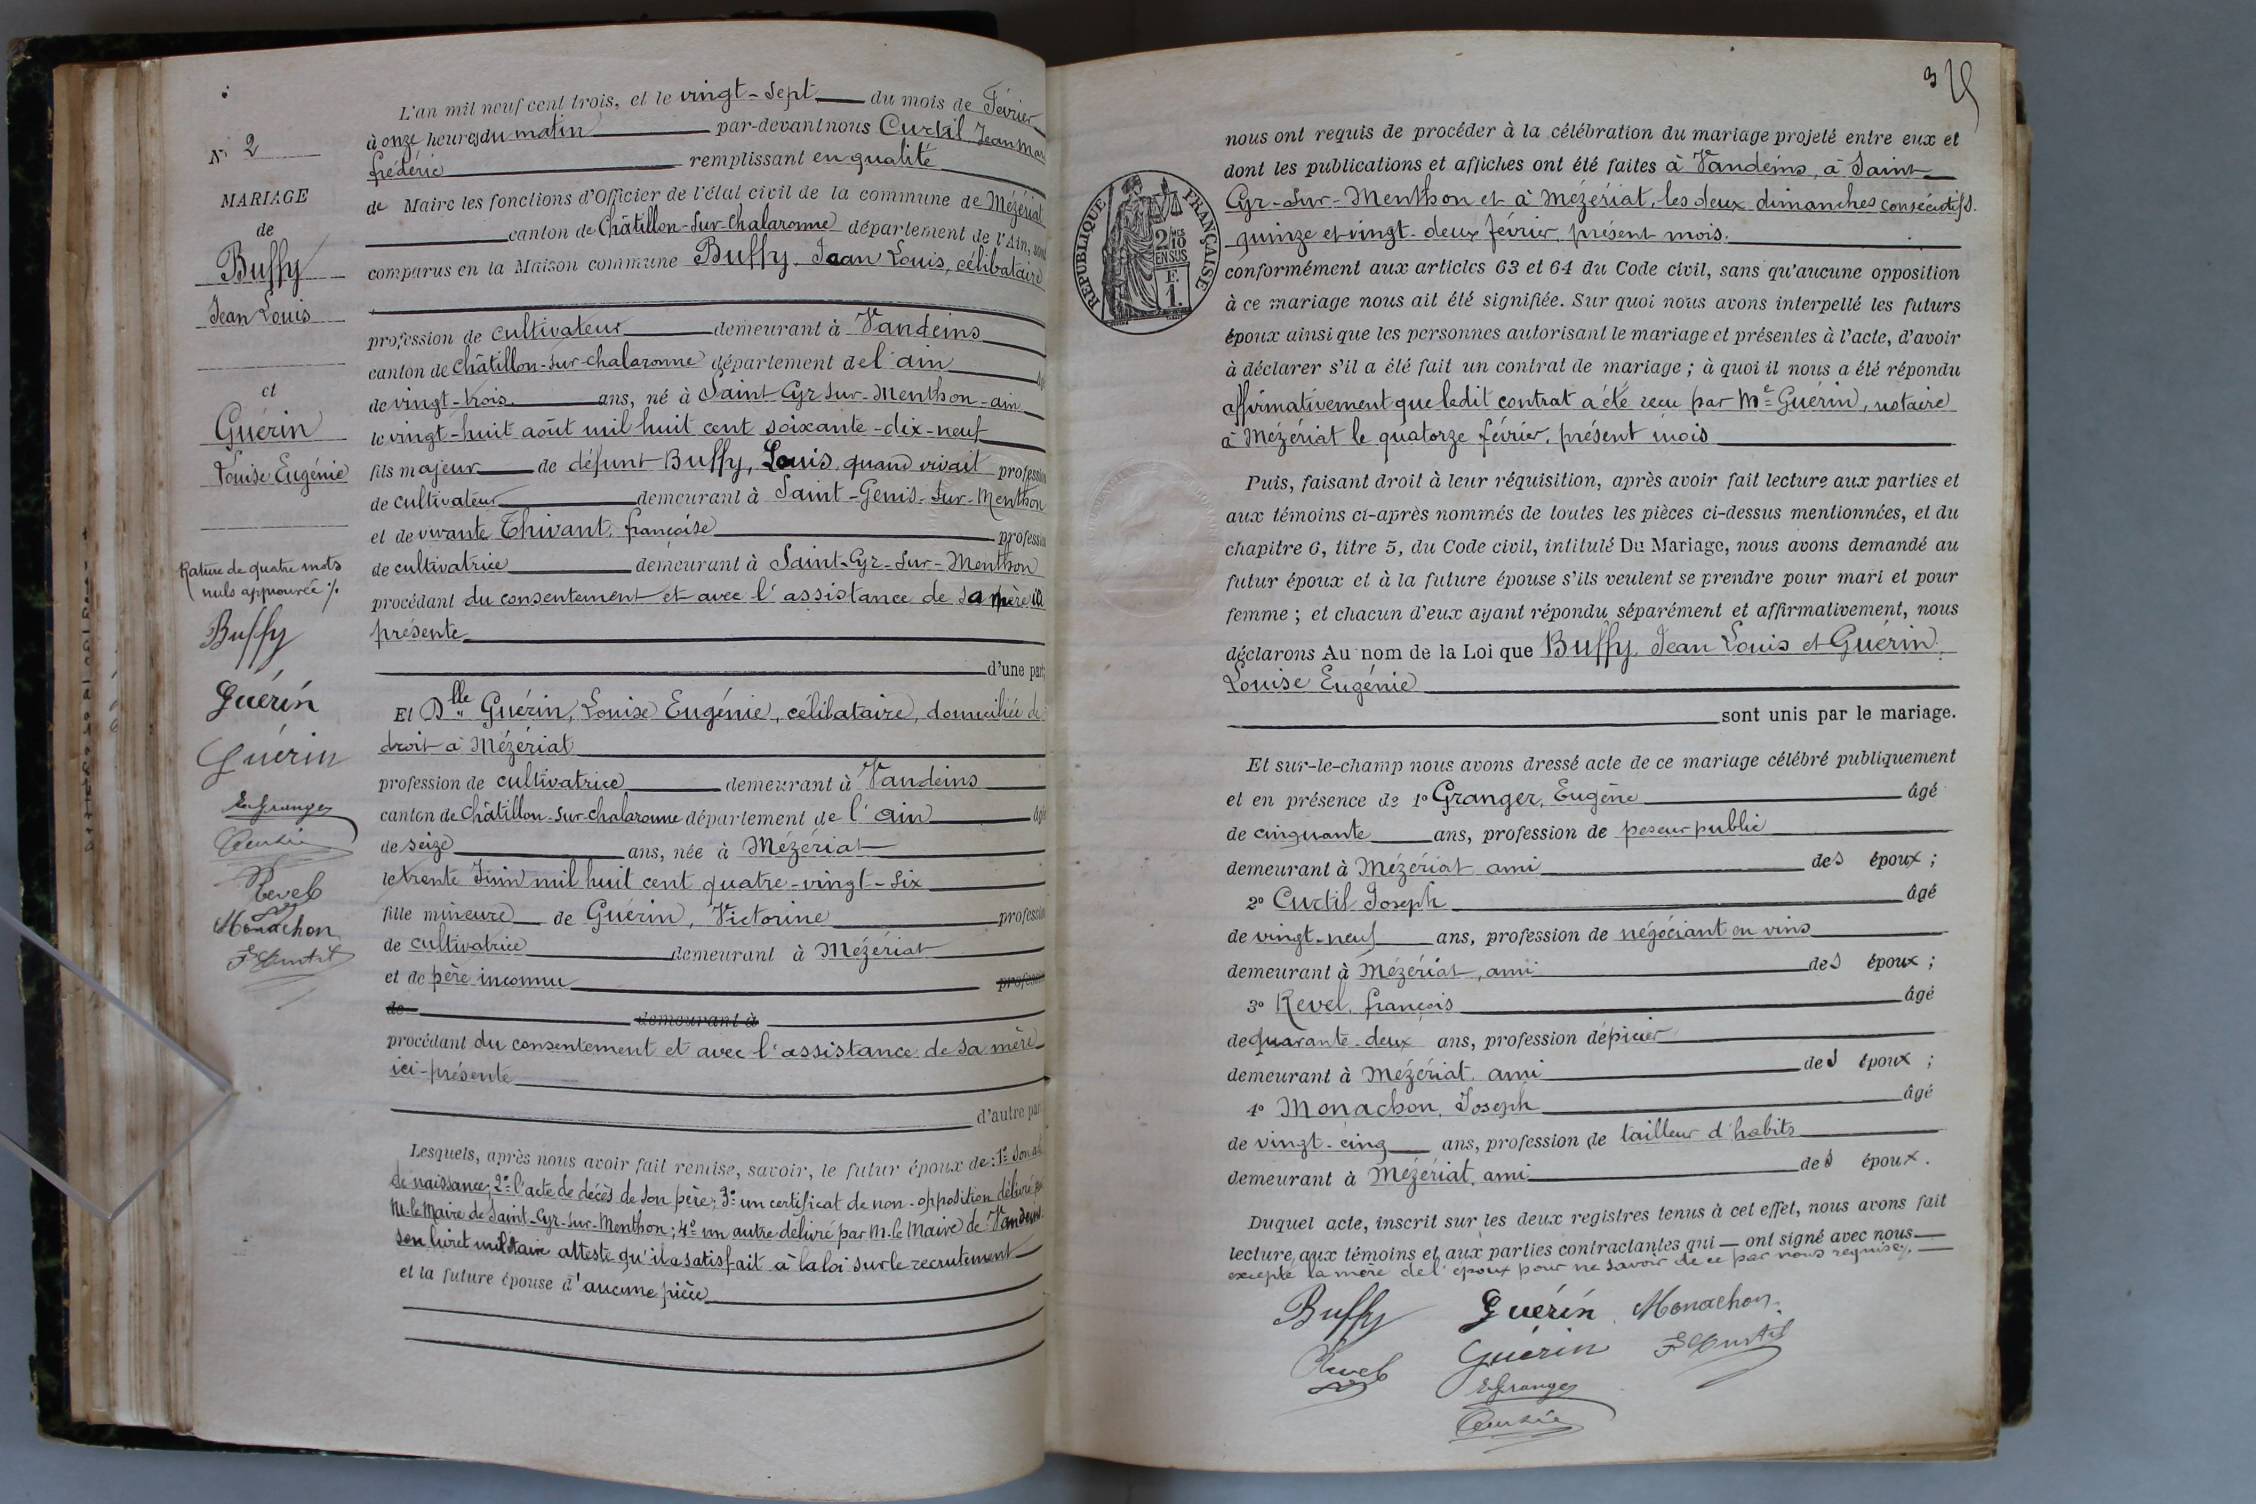 N° 2
MARIAGE
de
Buffy
Jean Louis
et
Guérin
Louise Eugénie
Rature de quatre mots
nuls approuvée ./.
Buffy
Guérin
Guérin
E Granger
Revel
Monachon
L'an mil neuf cent trois, et le vingt-sept du mois de Février
à onze heures du matin par-devant nous Curtil Jean Mar
frédéric remplissant en qualité
de Maire les fonctions d'Officier de l'état civil de la commune de Mézériat
canton de Châtillon-sur-Chalaronne département de l'Ain, sont
comparus en la Maison commune Buffy, Jean Louis, célibataire
profession de cultivateur demeurant à Vandeins
canton de Châtillon-sur-chalaronne département de l'ain âgé
de vingt-trois ans, né à Saint Cyr sur-Menthon-ain
le vingt-huit août mil huit cent soixante-dix-neuf
fils majeur de défunt Buffy, Louis quand vivait profession
de cultivateur demeurant à Saint-Genis-sur-Menthon
et de vivante Thivant, françoise profession
de cultivatrice demeurant à Saint-Cyr-sur-Menthon
procédant du consentement et avec l'assistance de sa mère ici
présente
d'une part;
Et Dlle Guérin, Louise Eugénie, célibataire, domiciliée de
droit à Mézériat
profession de cultivatrice demeurant à Vandeins
canton de Châtillon-sur-chalaronne département de l'ain âgée
de seize ans, née à Mézériat
le trente Juin mil huit cent quatre-vingt-six
fille mineure de Guérin, Victorine profession
de cultivatrice demeurant à Mézériat
et de père inconnu profession
de demeurant à
procédant du consentement et avec l'assistance de sa mère
ici-présente
d'autre part
Lesquels, après nous avoir fait remise, savoir, le futur époux de: 1° son acte
de naissance; 2° l'acte de décès de son père; 3° un certificat de non-opposition délivré par
M. le Maire de Saint-Cyr-sur-Menthon; 4° un autre délivré par M. le Maire de Vandeins
son livret militaire atteste qu'il a satisfait à la loi sur le recrutement
et la future épouse d'aucune pièce
RÉPUBLIQUE FRANÇAISE
2/10
EN SUS
F.
1.
nous ont requis de procéder à la célébration du mariage projeté entre eux et
dont les publications et affiches ont été faites à Vandeins, à Saint
Cyr-sur-Menthon et à Mézériat, les deux dimanches consécutifs
quinze et vingt-deux février, présent mois.
conformément aux articles 63 et 64 du Code civil, sans qu'aucune opposition
à ce mariage nous ait été signifiée. Sur quoi nous avons interpellé les futurs
époux ainsi que les personnes autorisant le mariage et présentes à l'acte, d'avoir
à déclarer s'il a été fait un contrat de mariage ; à quoi il nous a été répondu
affirmativement que ledit contrat a été reçu par Me Guérin, notaire
à Mézériat le quatorze février, présent mois
Puis, faisant droit à leur réquisition, après avoir fait lecture aux parties et
aux témoins ci-après nommés de toutes les pièces ci-dessus mentionnées, et du
chapitre 6, titre 5, du Code civil, intitulé Du Mariage, nous avons demandé au
futur époux et à la future épouse s'ils veulent se prendre pour mari et pour
femme ; et chacun d'eux ayant répondu séparément et affirmativement, nous
déclarons Au nom de la Loi que Buffy, Jean Louis et Guérin,
Louise Eugénie
sont unis par le mariage.
Et sur-le-champ nous avons dressé acte de ce mariage célébré publiquement
et en présence de 1° Granger, Eugène âgé
de cinquante ans, profession de peseur public
demeurant à Mézériat ami des époux ;
2° Curtil Joseph âgé
de vingt-neuf ans, profession de négociant en vins
demeurant à Mézériat, ami des époux ;
3° Revel, françois âgé
de quarante-deux ans, profession d'épicier
demeurant à Mézériat ami des époux ;
4° Monachon, Joseph âgé
de vingt-cinq ans, profession de tailleur d'habits
demeurant à Mézériat, ami des époux.
Duquel acte, inscrit sur les deux registres tenus à cet effet, nous avons fait
lecture aux témoins et aux parties contractantes qui ont signé avec nous
excepté la mère de l'époux pour ne savoir de ce par nous requise.
Buffy Guérin Monachon
Revel Guérin
E Granger